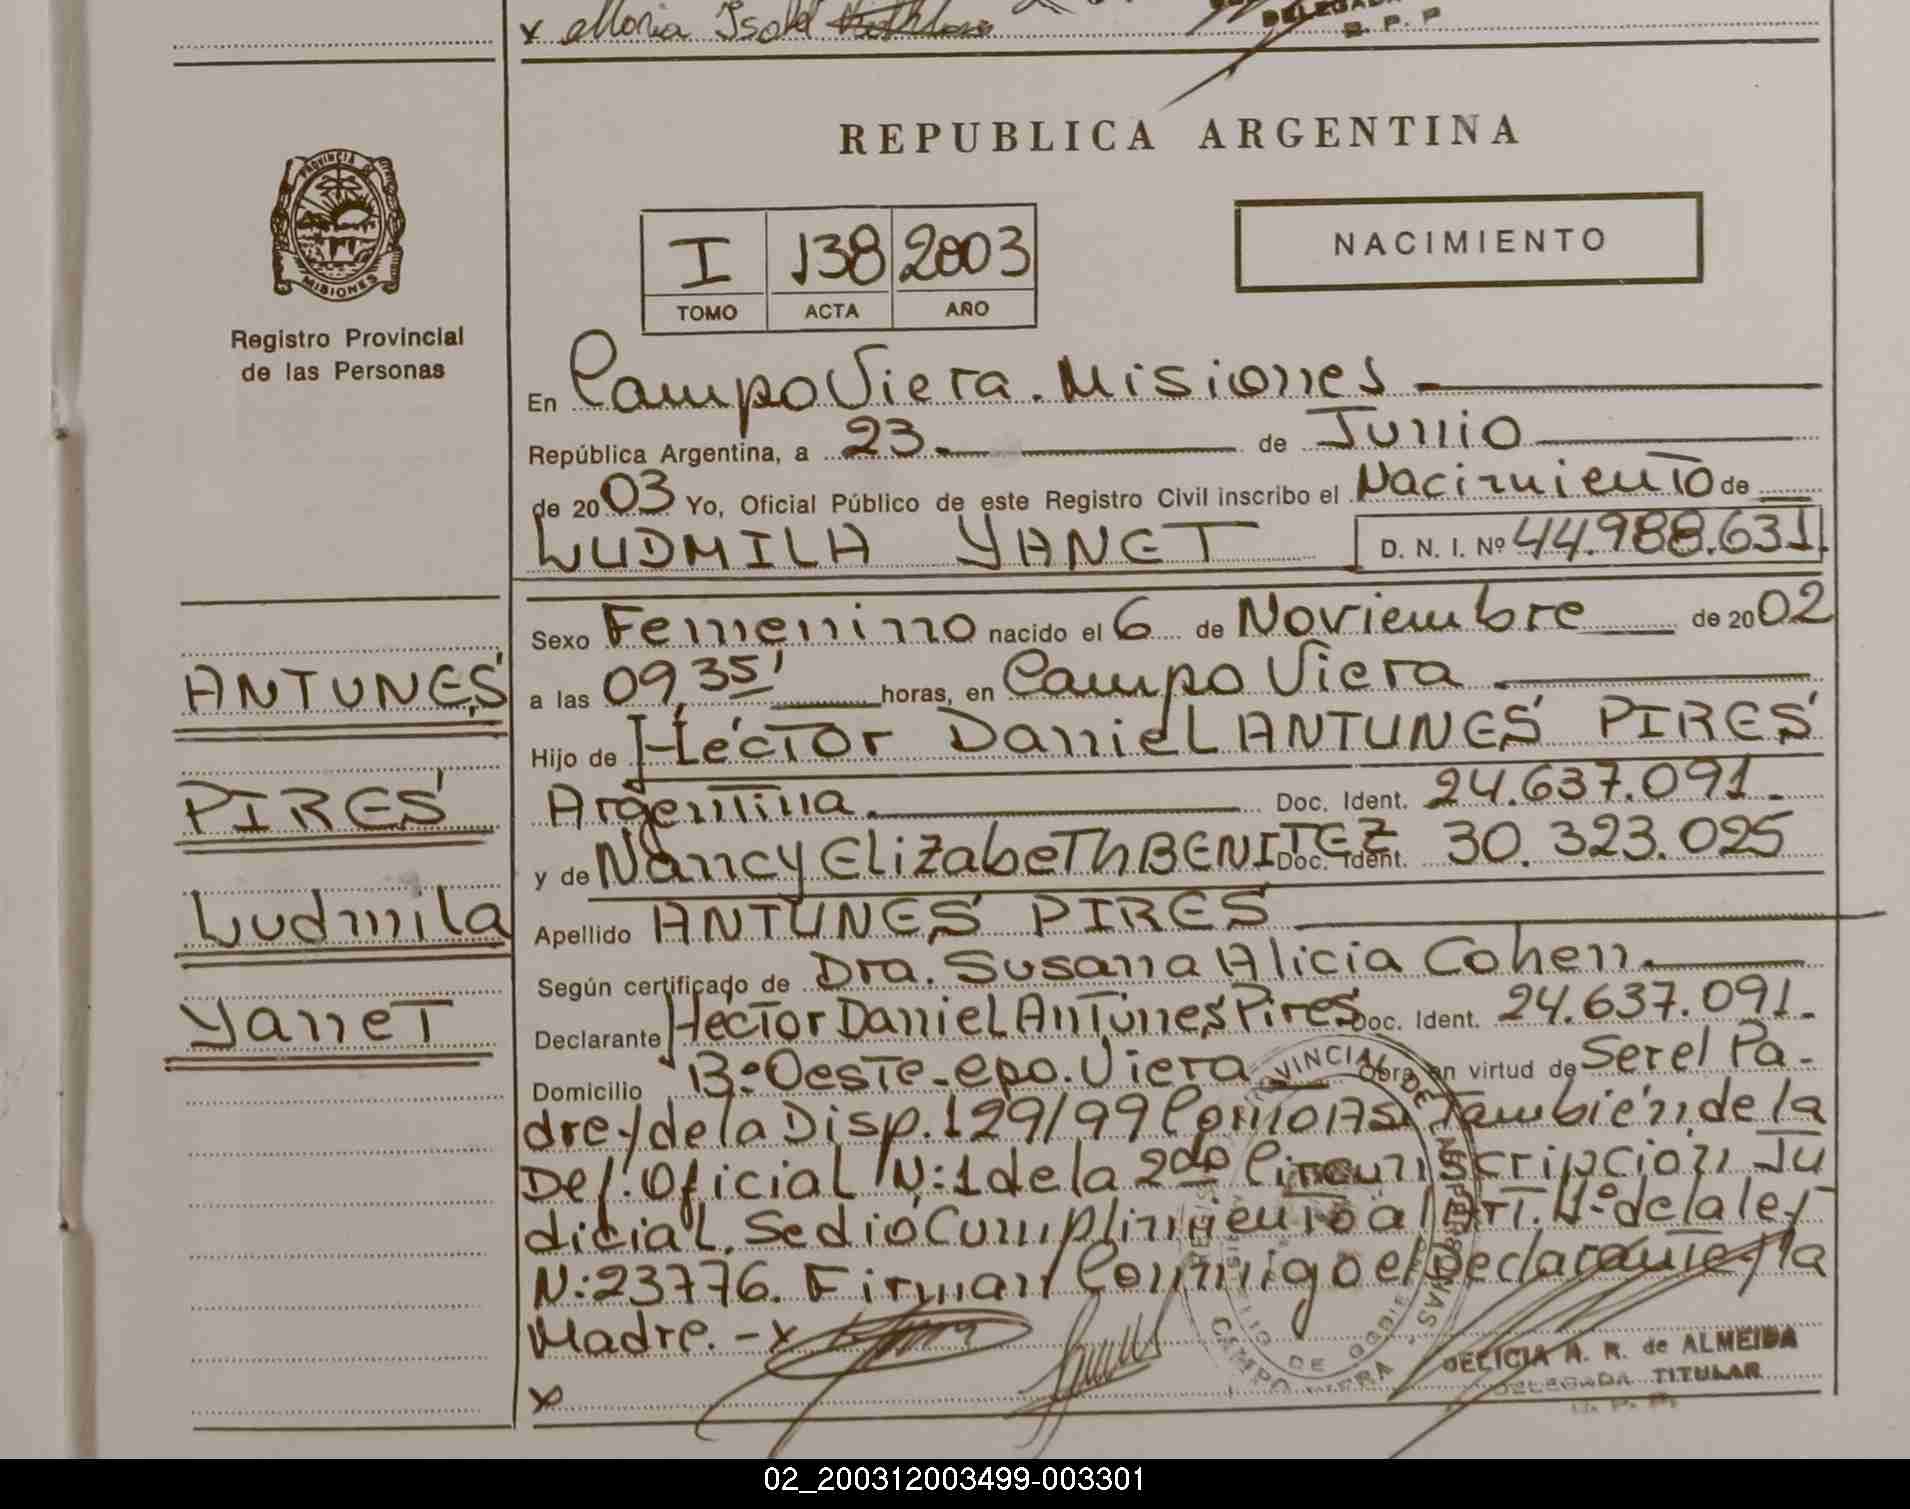 x Maria Isabel
DELEGADA
R. P. P
REPUBLICA ARGENTINA
PROVINCIA DE
MISIONES
Registro Provincial
de las Personas
I 138 2003
TOMO ACTA AÑO
NACIMIENTO
En Campo Viera. Misiones
República Argentina, a 23 de Junio
de 2003 Yo, Oficial Público de este Registro Civil inscribo el Nacimiento de
LUDMILA YANET D. N. I. Nº 44.988.631.
Sexo Femenino nacido el 6 de Noviembre de 2002
a las 09,35' horas, en Campo Viera
Hijo de Héctor Daniel ANTUNES PIRES
Argentina. Doc. Ident. 24.637.091.
y de Nancy Elizabeth BENITEZ Doc. Ident. 30.323.025
Apellido ANTUNES PIRES
Según certificado de Dra. Susana Alicia Cohen.
Declarante Hector Daniel Antunes Pires Doc. Ident. 24.637.091.
Domicilio Bº Oeste - cpo. Viera Obra en virtud de Ser el Pa-
dre y de la Disp. 129/99 Como Asi También, de la
Def. Oficial N:1 de la 2da Circunscripción Ju
dicial. Se dió Cumplimiento al Art. 1º de la ley
N:23776. Firman Conmigo el Declarante y la
Madre. - x
x
ANTUNES
PIRES
Ludmila
Yanet
PROVINCIAL DE LAS PERSONAS
CAMPO VIERA
DELICIA A. R. de ALMEIDA
DELEGADA TITULAR
R. P. P.
02_200312003499-003301